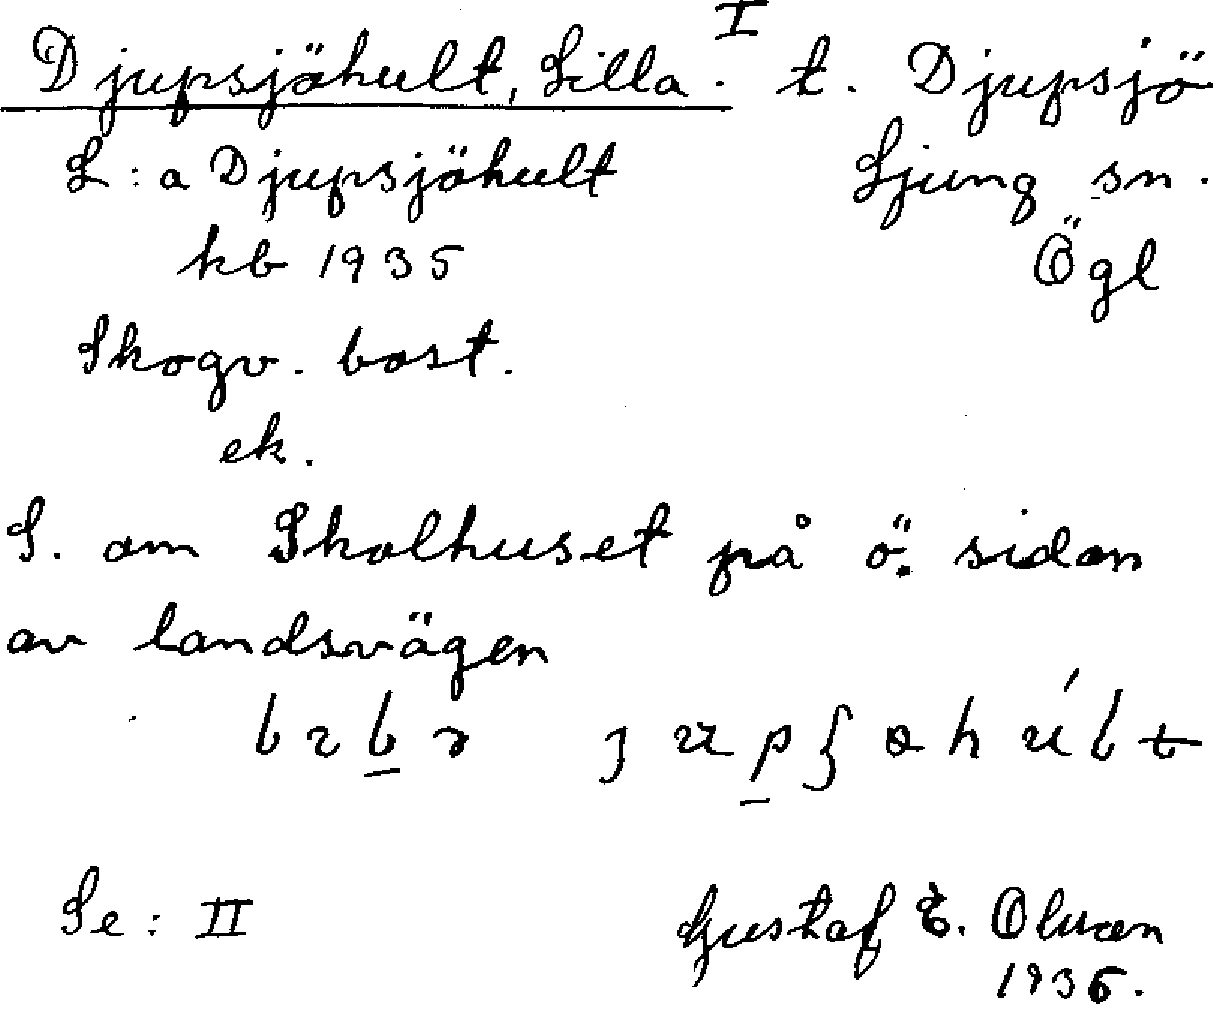 Djupsjöhult, Lilla. I t. Djupsjö
L:a Djupsjöhult Ljung sn.
kb 1935 Ögl
Skogv. bost.
ek.
S. om Skolhuset på ö. sidan
av landsvägen
Se: II Gustaf E.